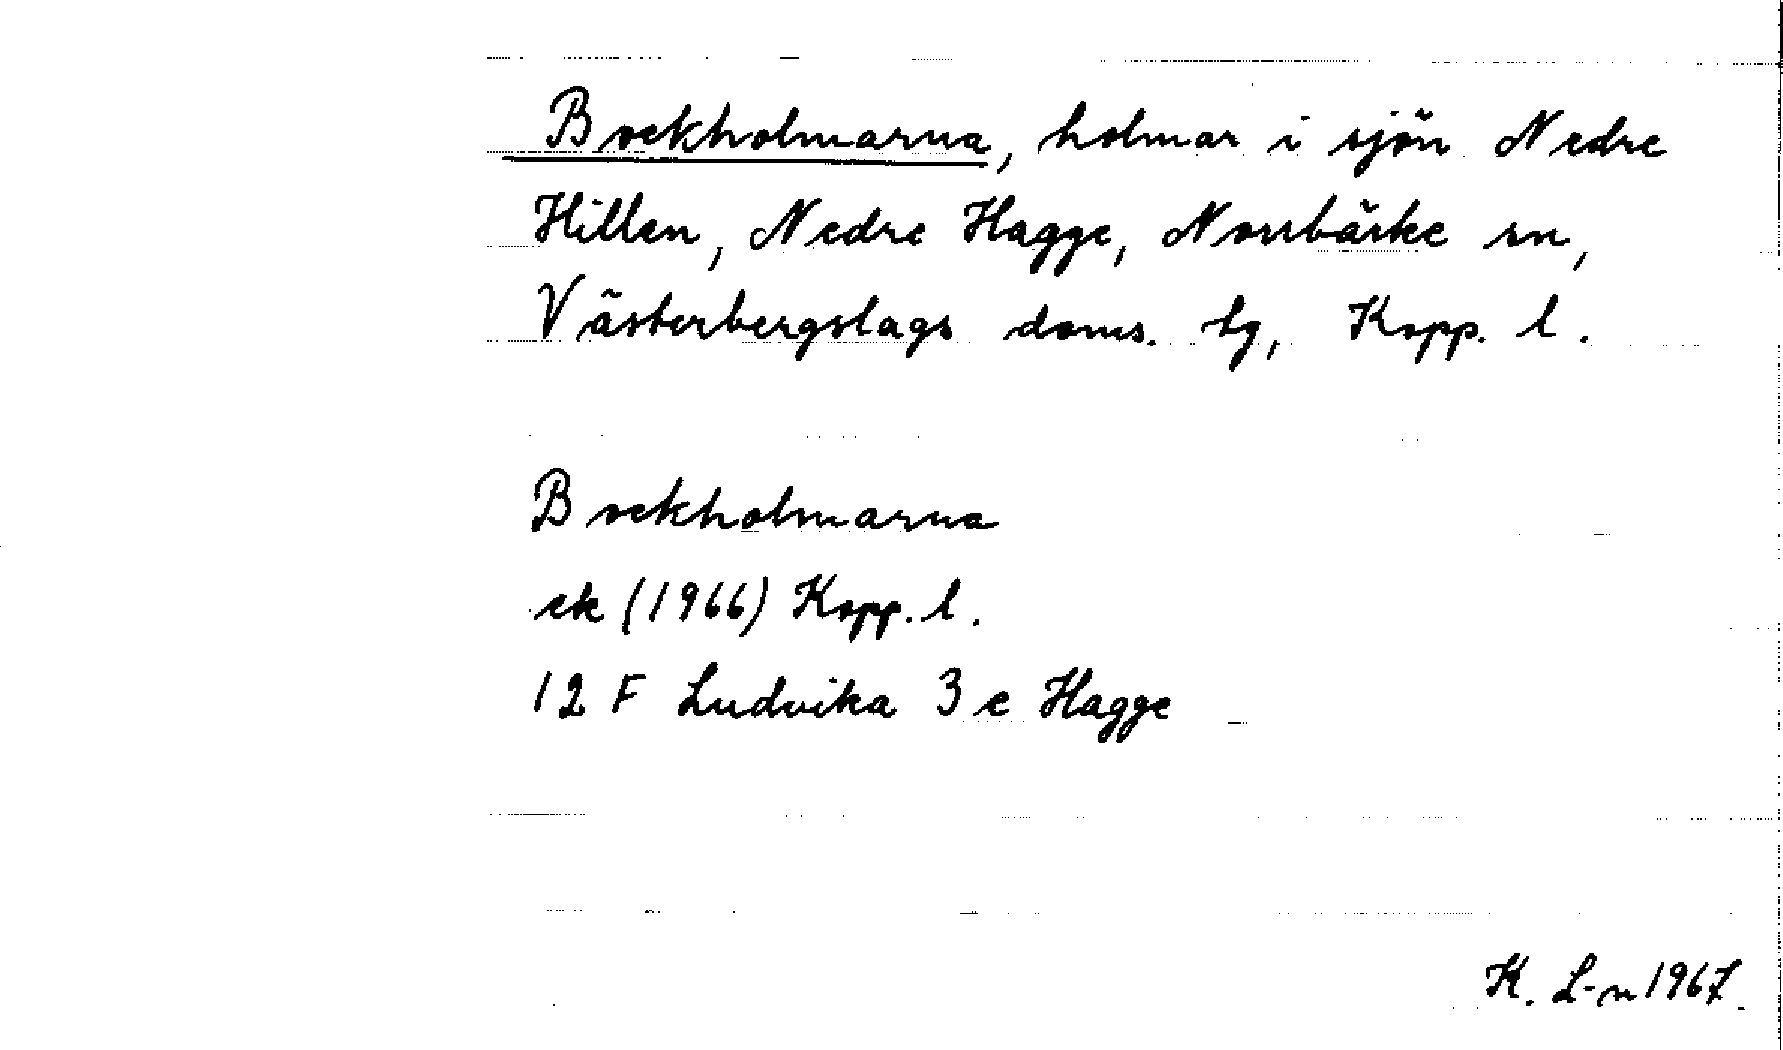 Bockholmarna, holmar i sjön Nedre
Hillen, Nedre Hagge, Norrbärke sn,
Västerbergslags doms. tg, Kopp. l.
Bockholmarna
ek (1966) Kopp. l.
12 F Ludvika 3 e Hagge
K. L-n 1967.